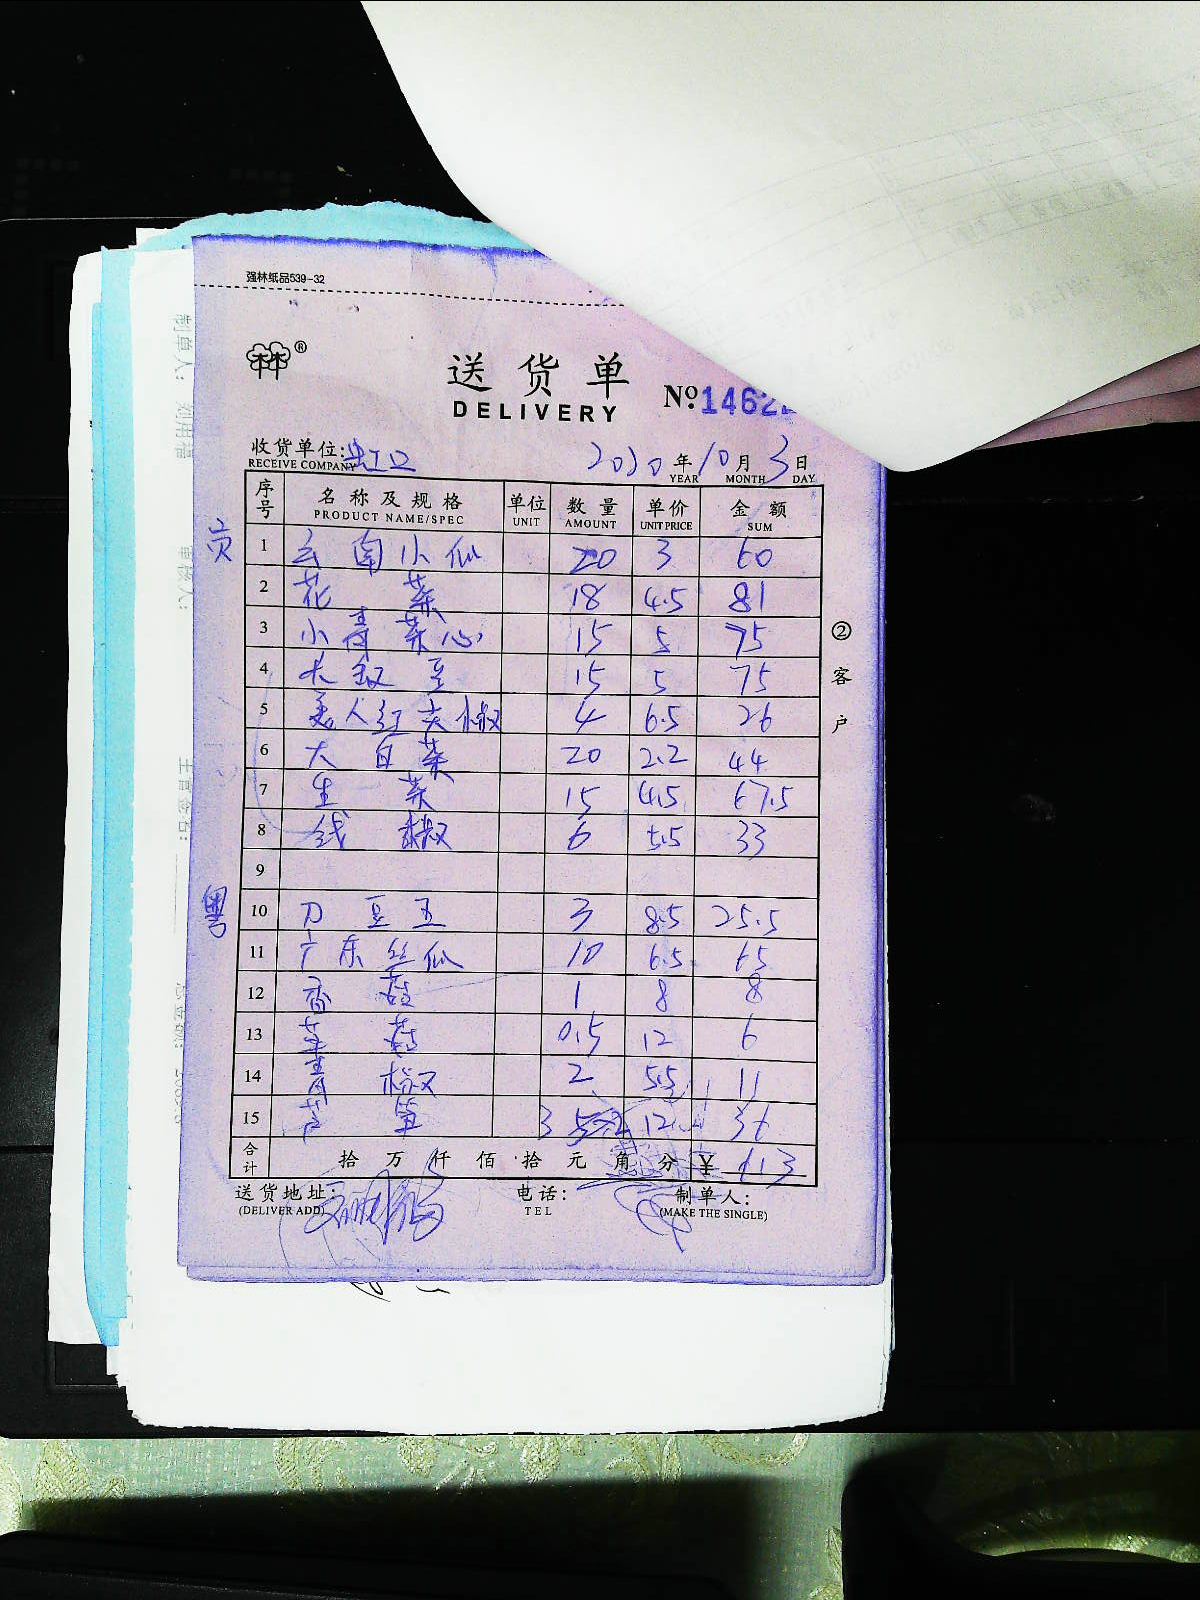 强林纸品539-32
林®
送货单
DELIVERY
№ 1462
收货单位: 虹口 2020年10月3日
RECEIVE COMPANY YEAR MONTH DAY
序号 名称及规格 单位 数量 单价 金额
PRODUCT NAME/SPEC UNIT AMOUNT UNIT PRICE SUM
1 云南小瓜 20 3 60
2 花菜 18 4.5 81
3 小青菜心 15 5 75
4 长豇豆 15 5 75
5 美人红尖椒 4 6.5 26
6 大白菜 20 2.2 44
7 生菜 15 4.5 67.5
8 线椒 6 5.5 33
9
10 刀豆王 3 8.5 25.5
11 广东丝瓜 10 6.5 65
12 香菇 1 8 8
13 草菇 0.5 12 6
14 青椒 2 5.5 11
15 芦笋 3 12 36
合计 拾万仟佰拾元角分 ¥ 613
送货地址: 电话: 制单人:
(DELIVER ADD) TEL (MAKE THE SINGLE)
②客户
粤
制单人:
审核人: